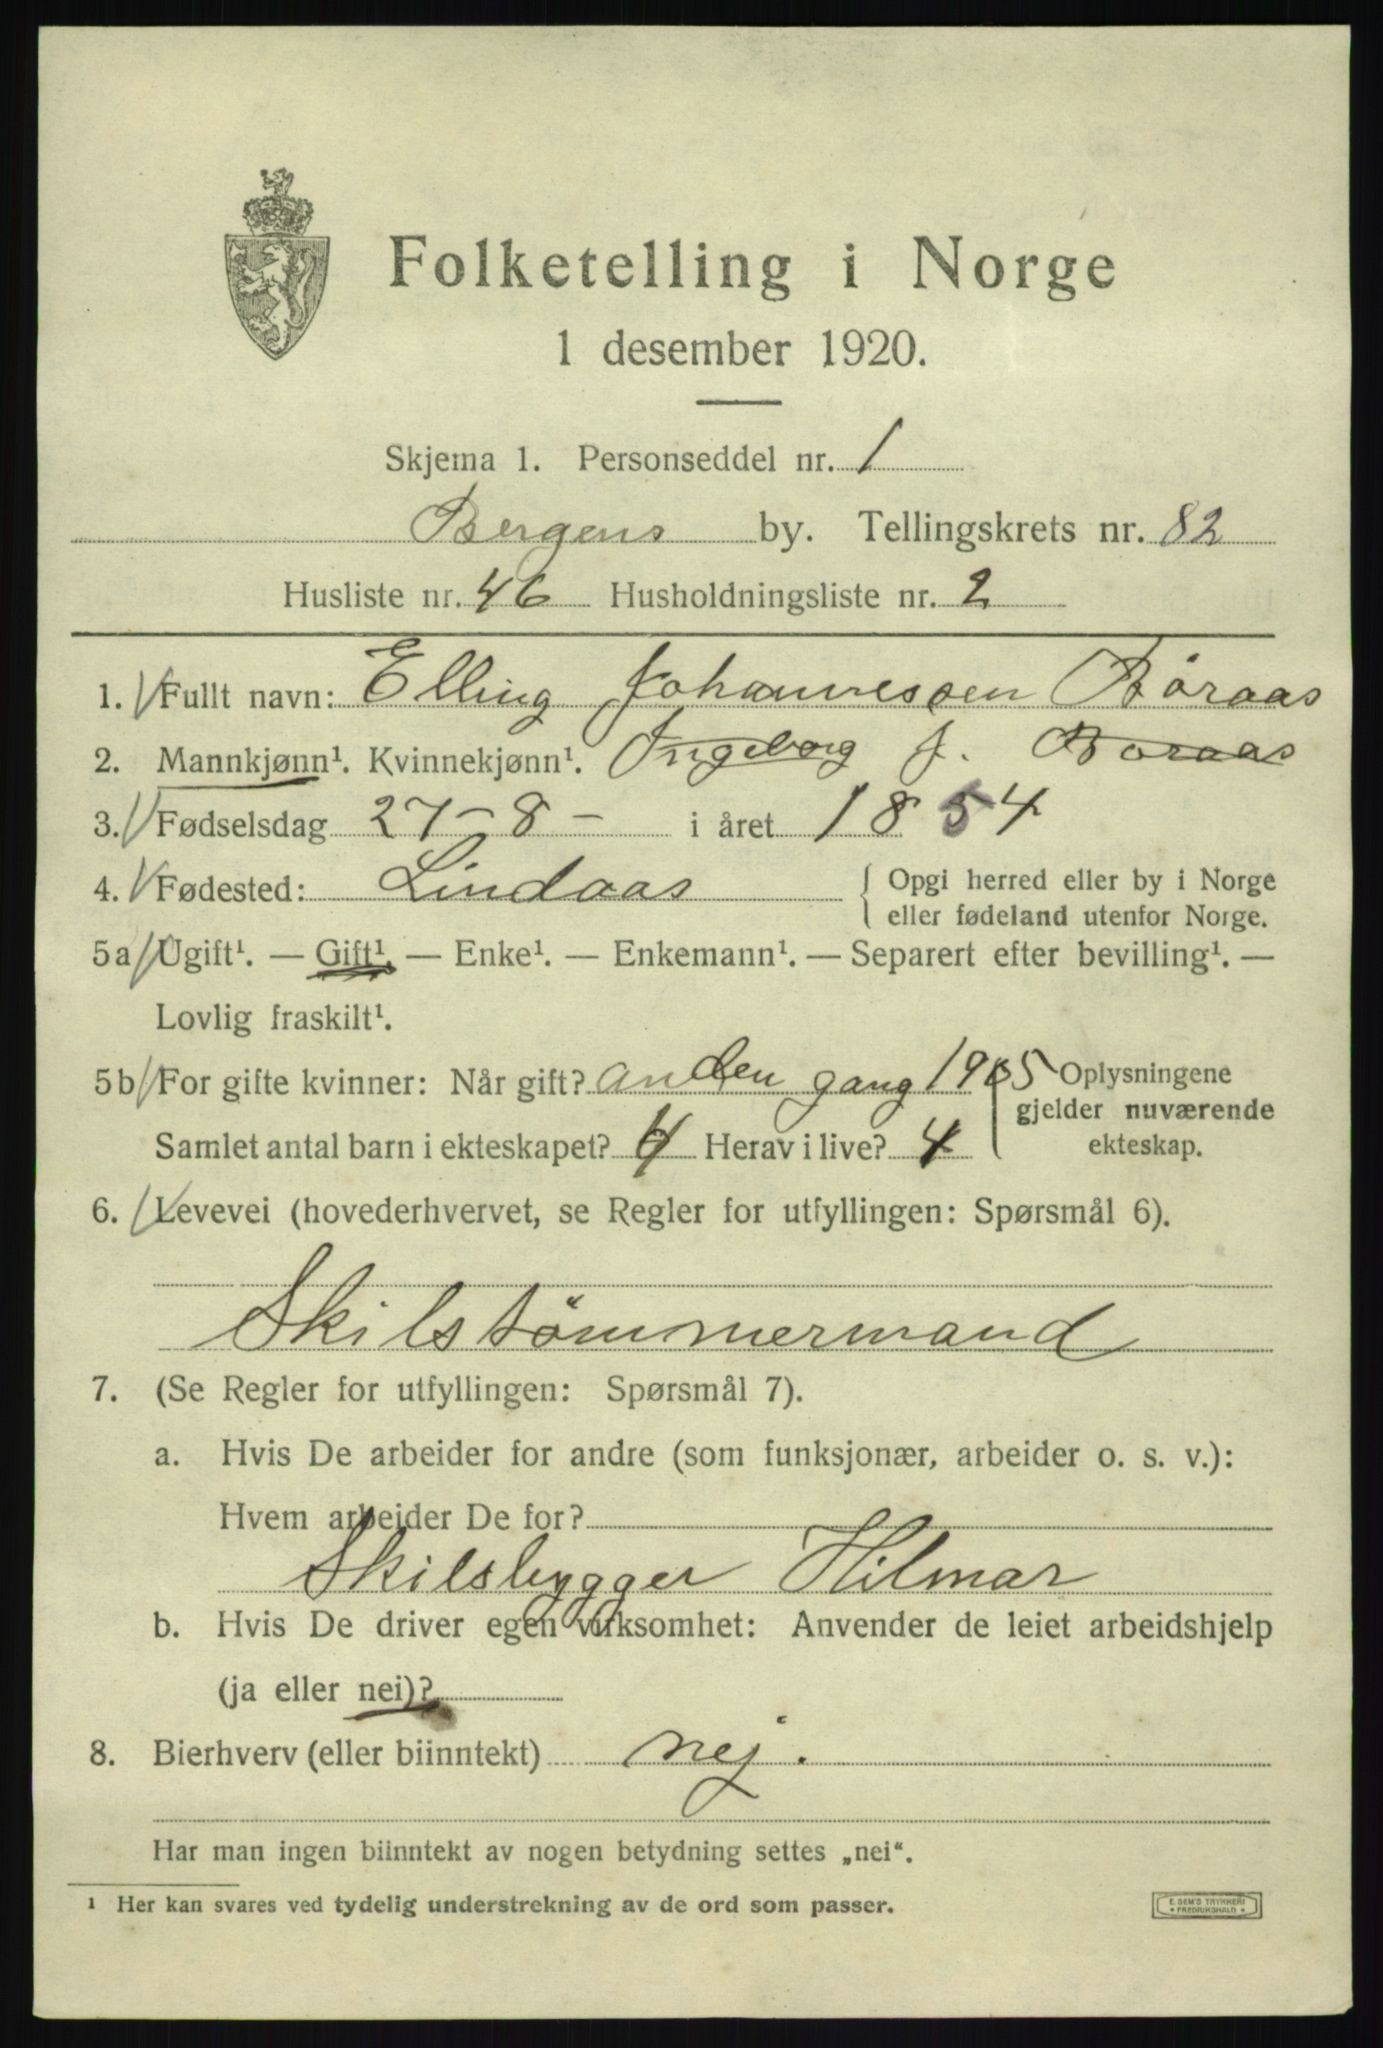 Folketelling i Norge
1 desember 1920.
Skjema 1. Personseddel nr. 1
Bergens by. Tellingskrets nr. 82
Husliste nr. 46 Husholdningsliste nr. 2
1. Fullt navn: Elling Johannessen Børaas
2. Mannkjønn¹. Kvinnekjønn¹. Ingeborg J. Boraas
3. Fødselsdag 27-8- i året 1854
4. Fødested: Lindaas { Opgi herred eller by i Norge
eller fødeland utenfor Norge.
5a Ugift¹. — Gift¹. — Enke¹. — Enkemann¹. — Separert efter bevilling¹. —
Lovlig fraskilt¹.
5b For gifte kvinner: Når gift? anden gang 1905 Oplysningene
gjelder nuværende
Samlet antal barn i ekteskapet? 4 Herav i live? 4 ekteskap.
6. Levevei (hovederhvervet, se Regler for utfyllingen: Spørsmål 6).
Skilstømmermand
7. (Se Regler for utfyllingen: Spørsmål 7).
a. Hvis De arbeider for andre (som funksjonær, arbeider o. s. v.):
Hvem arbeider De for?
Skilsbygger Hilmar
b. Hvis De driver egen virksomhet: Anvender de leiet arbeidshjelp
(ja eller nei)?
8. Bierhverv (eller biinntekt) nej.
Har man ingen biinntekt av nogen betydning settes „nei“.
¹ Her kan svares ved tydelig understrekning av de ord som passer.
E. SEM'S TRYKKERI
* FREDRIKSHALD *